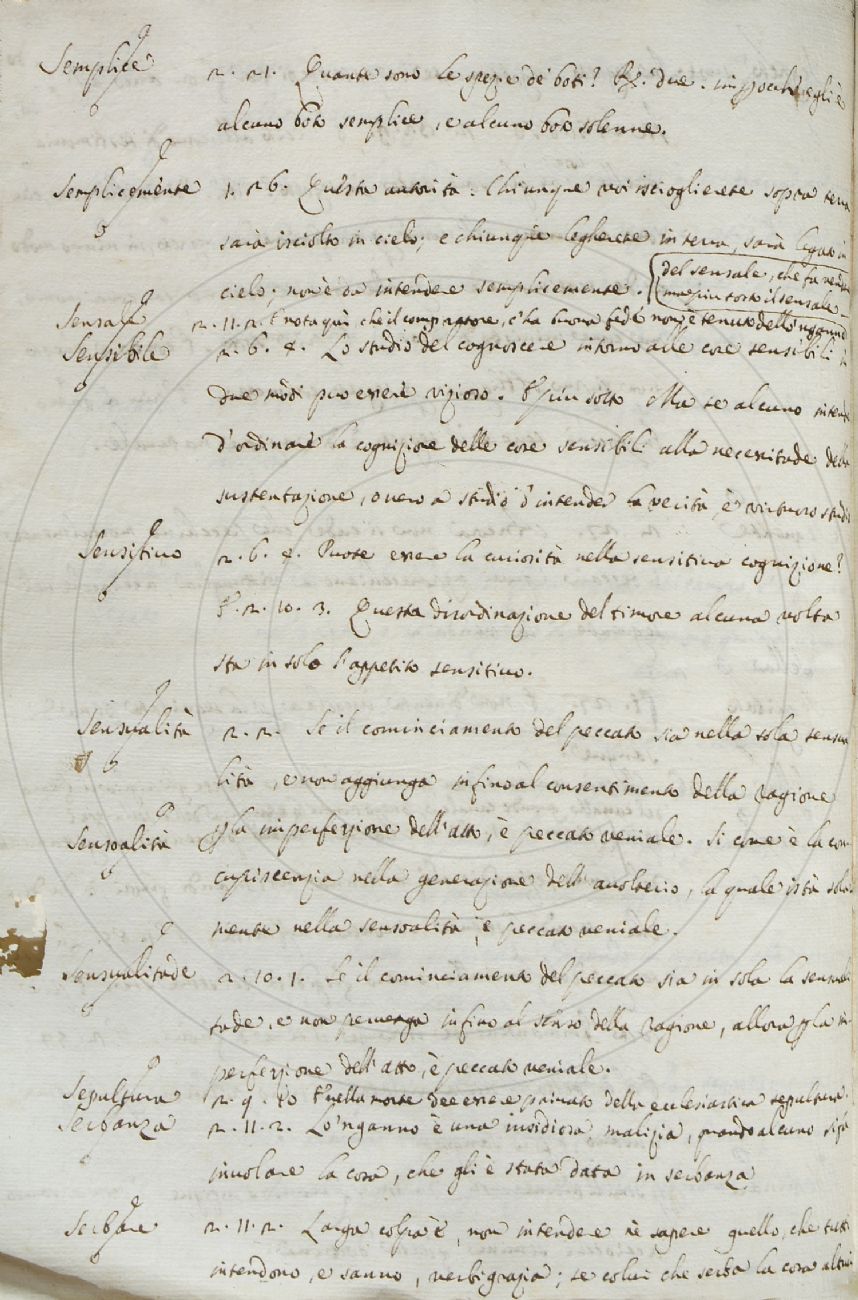 Semplice 2. 21. Quante sono le spezie de boti? R. due. imperocch' egli è
alcuno boto semplice, e alcuno boto solenne.
Semplicemente 1. 26. Questa autorità: Chiunque voi isciogliere sopra terra
sarà isciolto in cielo; e chiunque legherete in terra, sarà legato in
cielo; non è da intendere semplicemente.
Sensale 2. 11. 2. E nota quì che il compratore, c'ha buona fede non è tenuto dello 'nganno
del sensale, che fa vendere
ma più tosto il sensale.
Sensibile 2. 6. 4. Lo studio del cognoscere intorno alle cose sensibili in
due modi può essere vizioso. E più sotto Ma se alcuno intende
d'ordinare la cognizione delle cose sensibili alla necessitade della
sustentazione, o vero a studio d'intender la verità, è virtuoso studio
Sensitivo 2. 6. 4. Puote essere la curiosità nella sensitiva cognizione?
E. 2. 10. 3. Questa disordinazione del timore alcuna volta
sta in solo l'appetito sensitivo.
Sensualità 2. 2. Se il cominciamento del peccato sia nella sola sensua
lità, e non aggiunga infino al consentimento della ragione
p la imperfezione dell'atto, è peccato veniale. Si come è la con
Sensoalità cupiscenzia nella generazione dell'avolterio, la quale istà sola
mente nella sensoalità, è peccato veniale.
Sensualitade 2. 10. 1. Se il cominciamento del peccato sia in sola la sensuali
tade, e non pervenga infino al senso della ragione, allora p la im
perfezione dell'atto, è peccato veniale.
Sepultura 2. 9. 10 E nella morte dee essere privato della eclesiastica sepultura.
Serbanza 2. 11. 2. Lo 'nganno è una insidiosa malizia, quando alcuno si fa
involare la cosa, che gli è stata data in serbanza
Serbare 2. 11. 2. Larga colpa è, non intendere nè sapere quello, che tutti
intendono, e sanno, verbigrazia; se colui che serba la cosa altrui